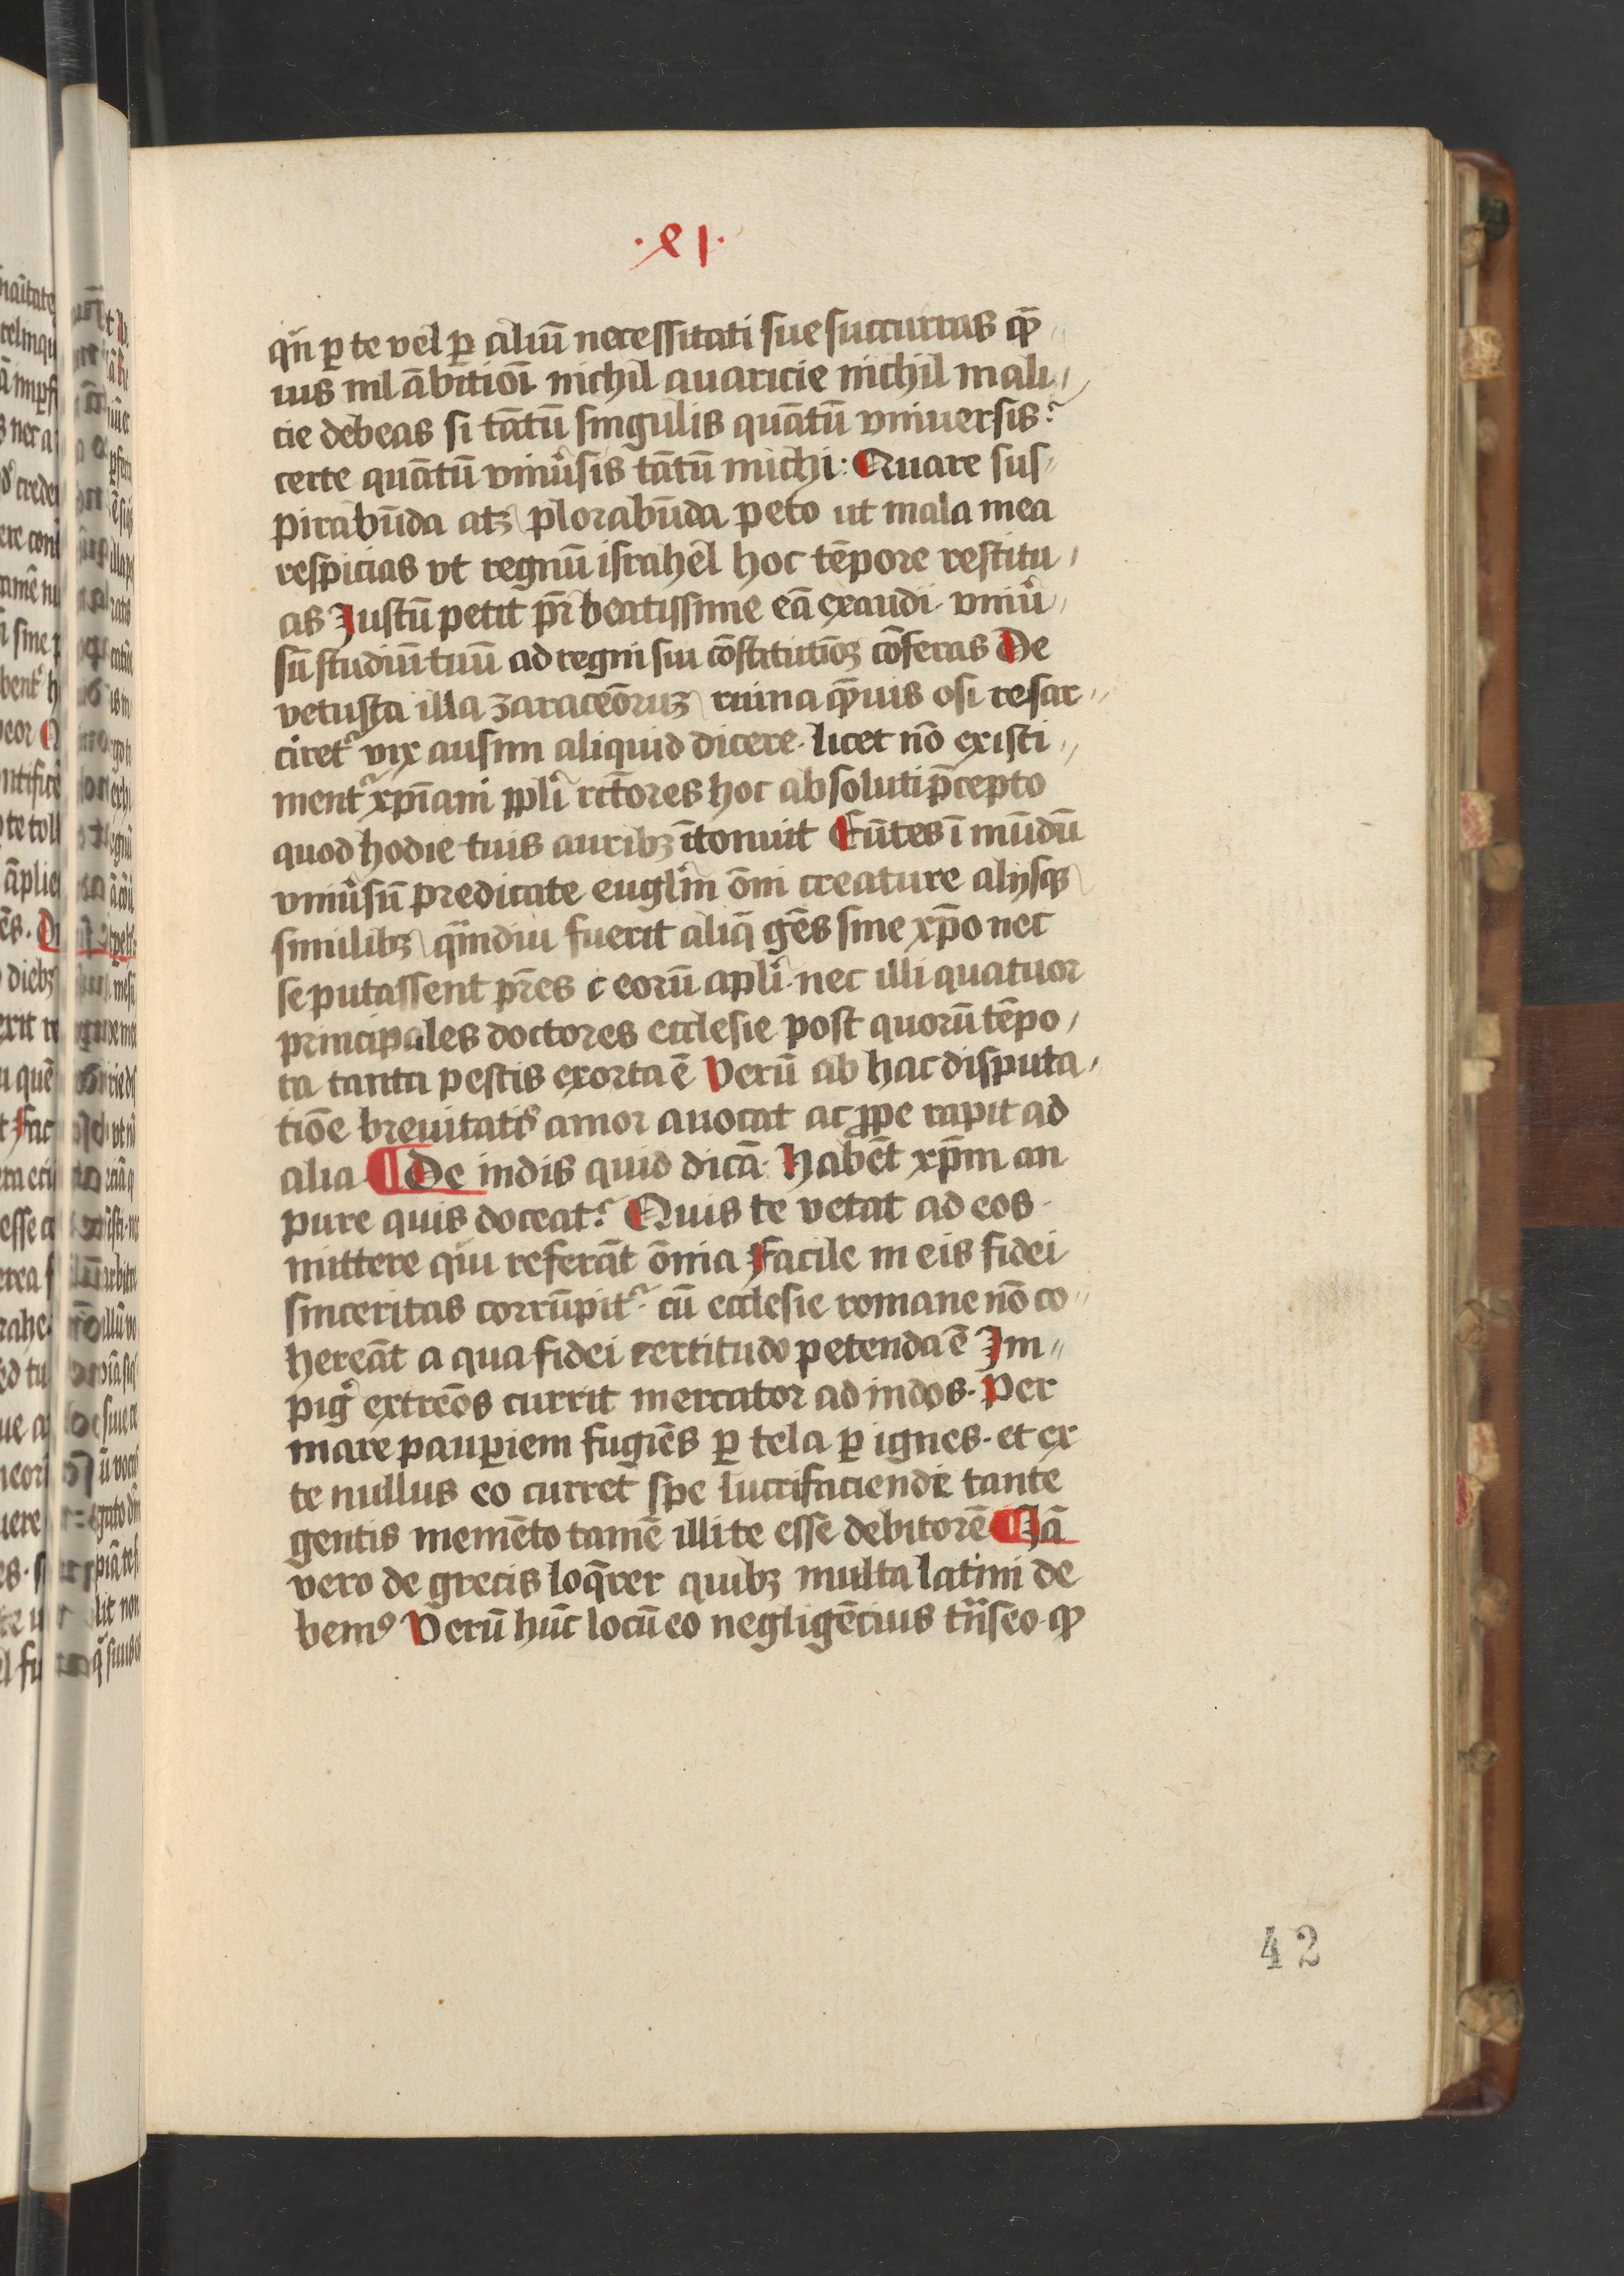 ·xl·
qn̄ ꝑ te vel ꝑ aliū necessitati sue succurras qͣ
uis nil ābitioī nichil auaricie nichil mali
cie debeas si tātū singulis quātū vniuersis?
certe quātū vniu̾sis tātū michi: Quare sus
pirabūda atꝫ plorabūda peto ut mala mea
respicias vt regnū israhel hoc tēpore restitu
as Justū petit pr̄ beatissime eā exaudi vniu̾
sū studiū tuū ad regni sui cōstitutiōꝫ cōferas De
vetusta illa zaraceōruꝫ ruina qͣuis osi resar
ciret᷑ vix ausim aliquid dicere· licet nō existi
ment᷑ xp̄iani ppl̓i rc̄tores hoc absoluti p̄cepto
quod hodie tuis auribꝫ ītonuit Eūtes ī mūdū
vniu̾sū predicate eugl̓m ōni creature alijsqꝫ
similibꝫ qͣmdiu fuerit aliq̄ gēs sine xp̄o nec
se putassent pr̄es c eorū apl̓i· nec illi quatuor
principales doctores ecclesie post quorū tēpo
ra tanta pestis exorta ē Verū ab hac disputa
tiōe breuitatis amor auocat ac ꝓpe rapit ad
alia ¶ De indis quid dicā: Habēt xp̄m an
pure quis doceat? Quis te vetat ad eos
mittere qui referāt ōnia Facile in eis fidei
sinceritas corrūpit᷑· cū ecclesie romane nō co
hereāt a qua fidei certitudo petenda ē Im
pig̾ extreōs currit mercator ad indos· Per
mare pauꝑiem fugiēs ꝑ tela ꝑ ignes· et ex
te nullus eo curret spe lucrifaciendi tante
gentis memēto tamē illi te esse debitorē ¶ Jā
vero de grecis loq̄rer quibꝫ multa latini de
bemꝰ Verū hūc locū eo negligēcius trāseo· ꝙ
42